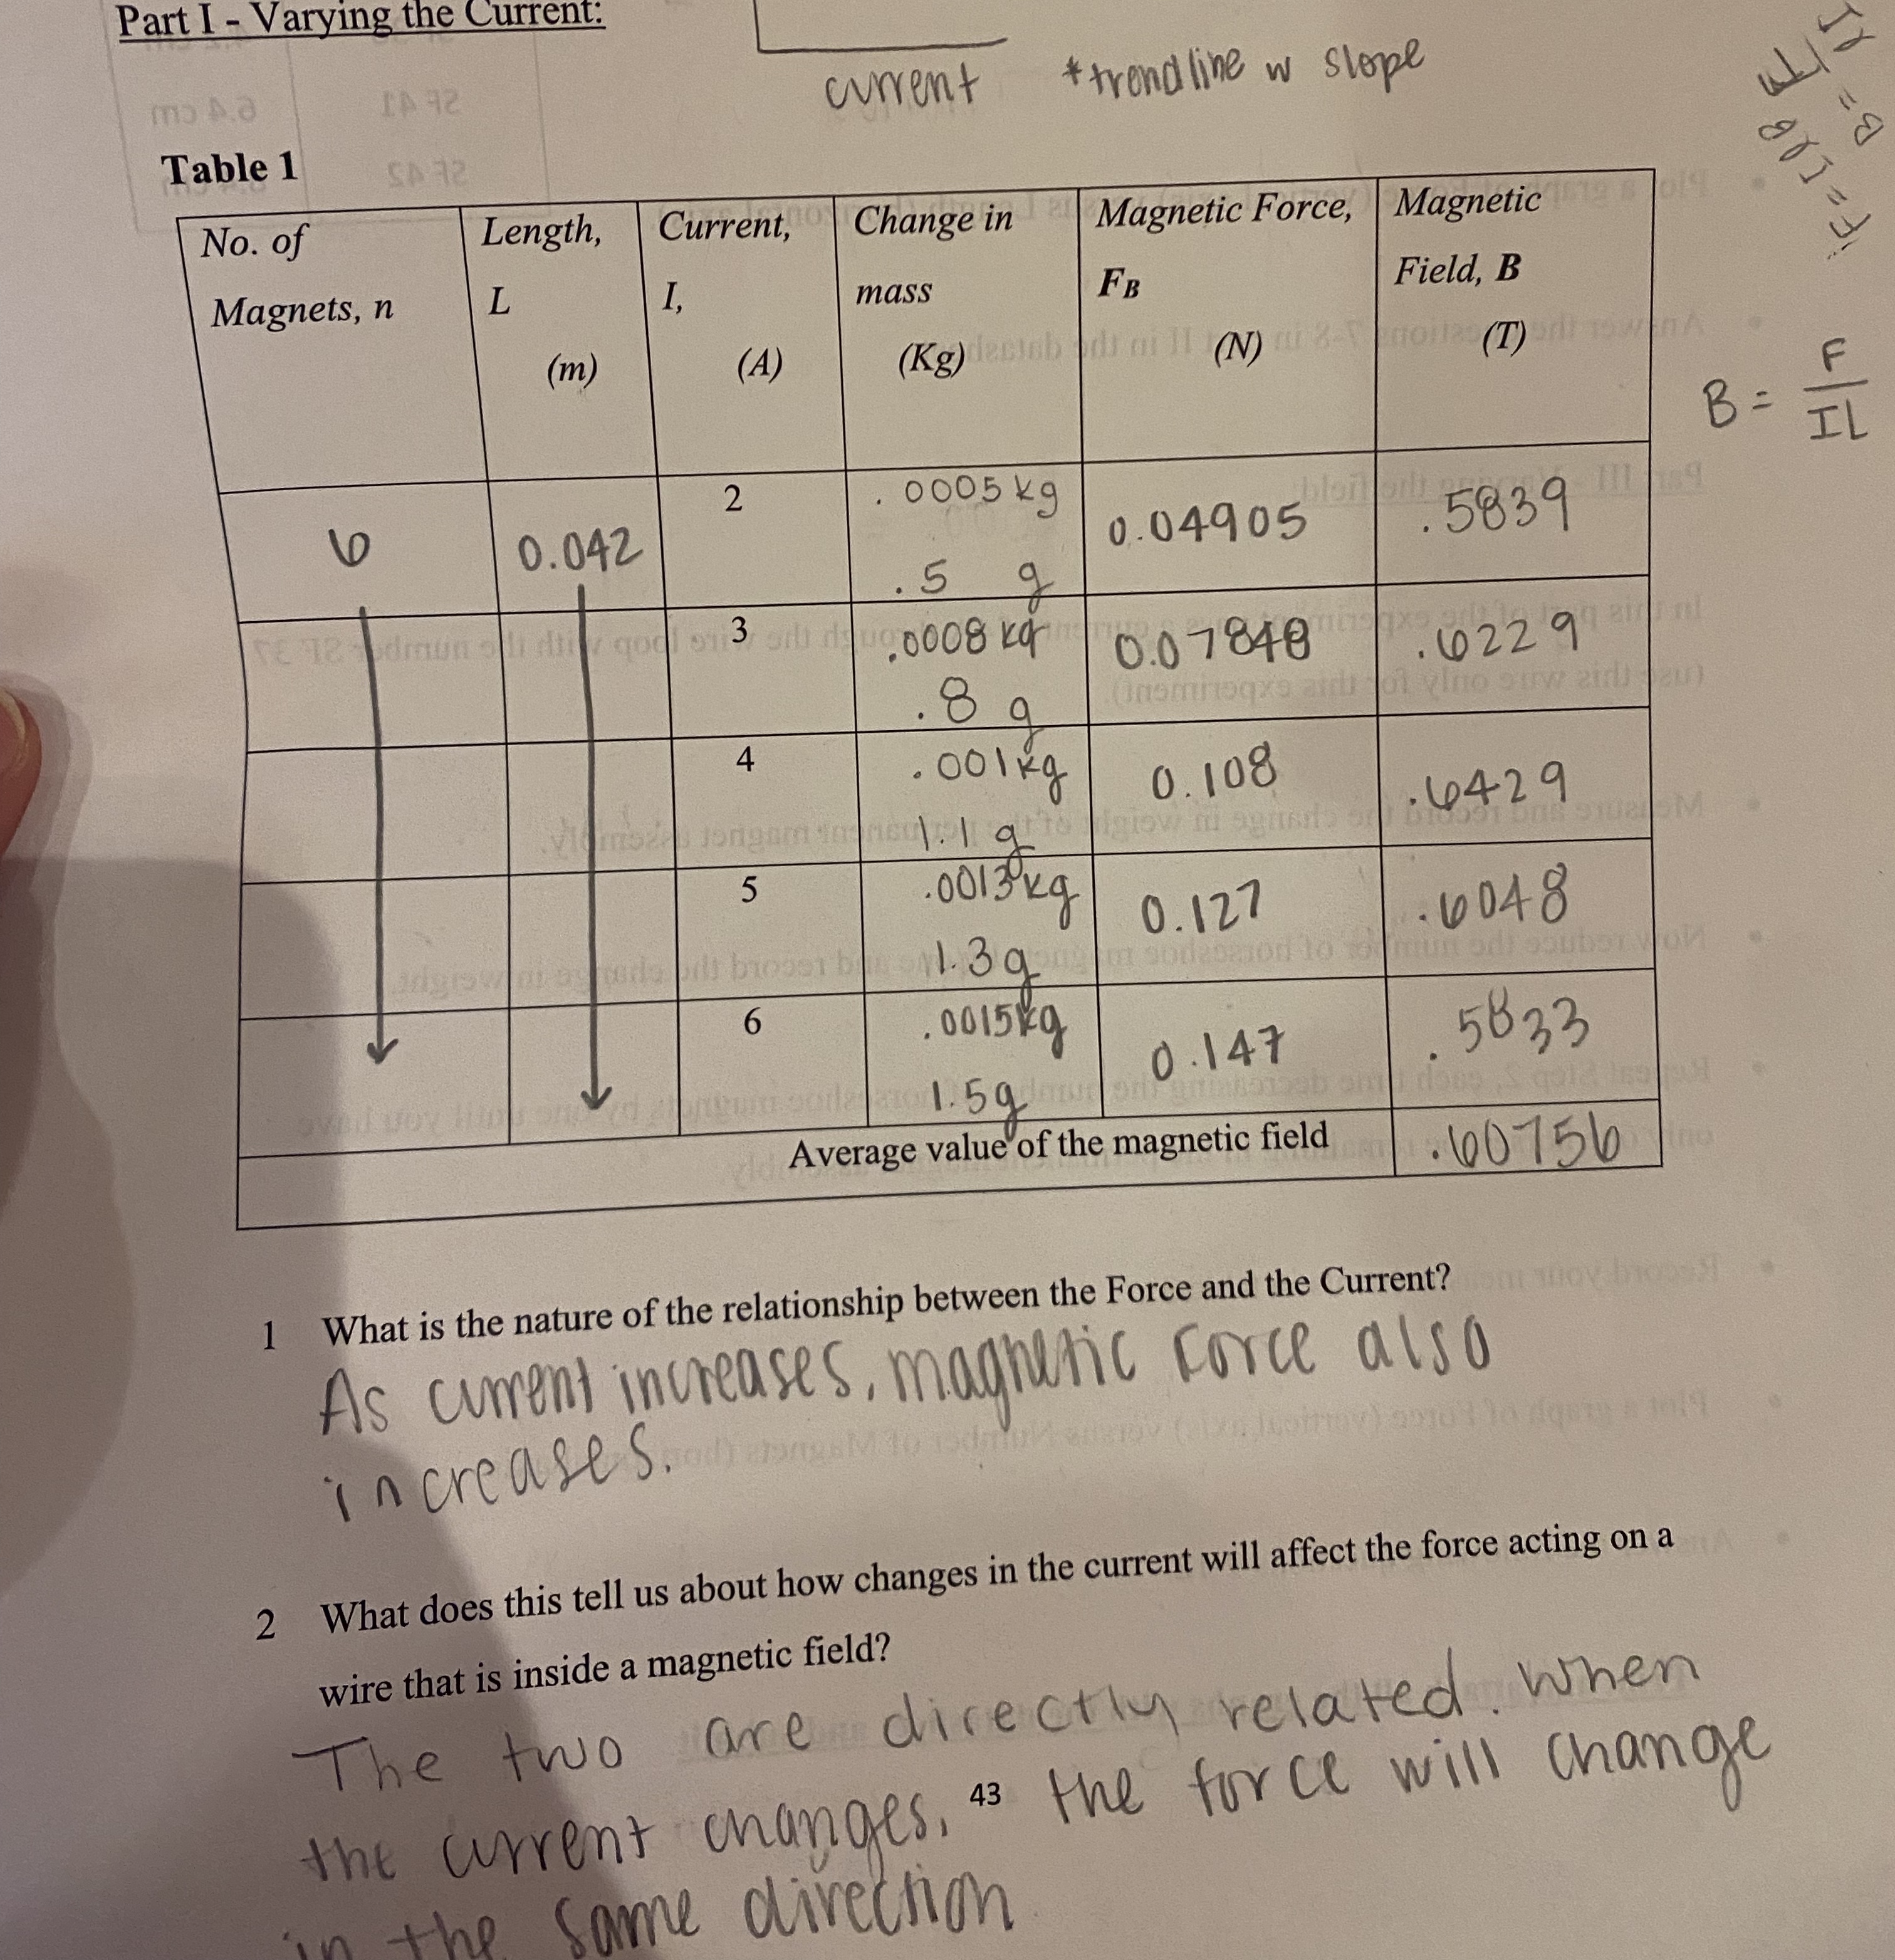 Part I - Varying the Current:
current *trendline w slope
6.4 cm SF 41
SF 42
F = IlB
B = F/Il
Table 1
No. of Magnets, n Length, L (m) Current, I, (A) Change in mass (Kg) Magnetic Force, FB (N) Magnetic Field, B (T)
B = F/IL
6 0.042 2 .0005 kg .5 g 0.04905 .5839
3 .0008 kg .8 g 0.07848 .6229
4 .001 kg 1.1 g 0.108 .6429
5 .0013 kg 1.3 g 0.127 .6048
6 .0015 kg 1.5 g 0.147 .5833
Average value of the magnetic field .60756
1 What is the nature of the relationship between the Force and the Current?
As current increases, magnetic force also
increases.
2 What does this tell us about how changes in the current will affect the force acting on a
wire that is inside a magnetic field?
The two are directly related. When
the current changes, the force will change
43
in the same direction